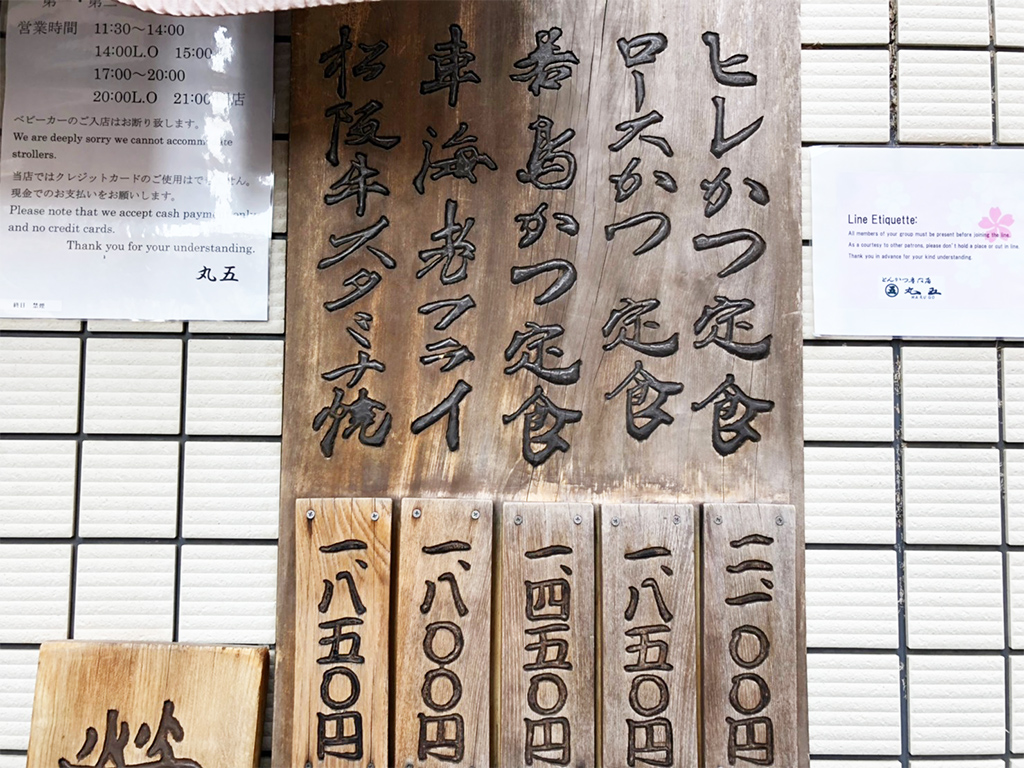 営業時間 11:30～14:00
14:00L.O 15:00
17:00～20:00
20:00L.O 21:00 店
ベビーカーのご入店はお断り致します。
We are deeply sorry we cannot accommodate
strollers.
当店ではクレジットカードのご使用はできません。
現金でのお支払いをお願いします。
Please note that we accept cash payment only
and no credit cards.
Thank you for your understanding.
丸五
終日 禁煙
ヒレかつ定食
二、一〇〇円
ロースかつ定食
一、八五〇円
若鳥かつ定食
一、四五〇円
車海老フライ
一、八〇〇円
松阪牛スタミナ焼
一、八五〇円
Line Etiquette:
All members of your group must be present before joining the line.
As a courtesy to other patrons, please don't hold a place or cut in line.
Thank you in advance for your kind understanding.
とんかつ専門店
五 丸五
MARUGO